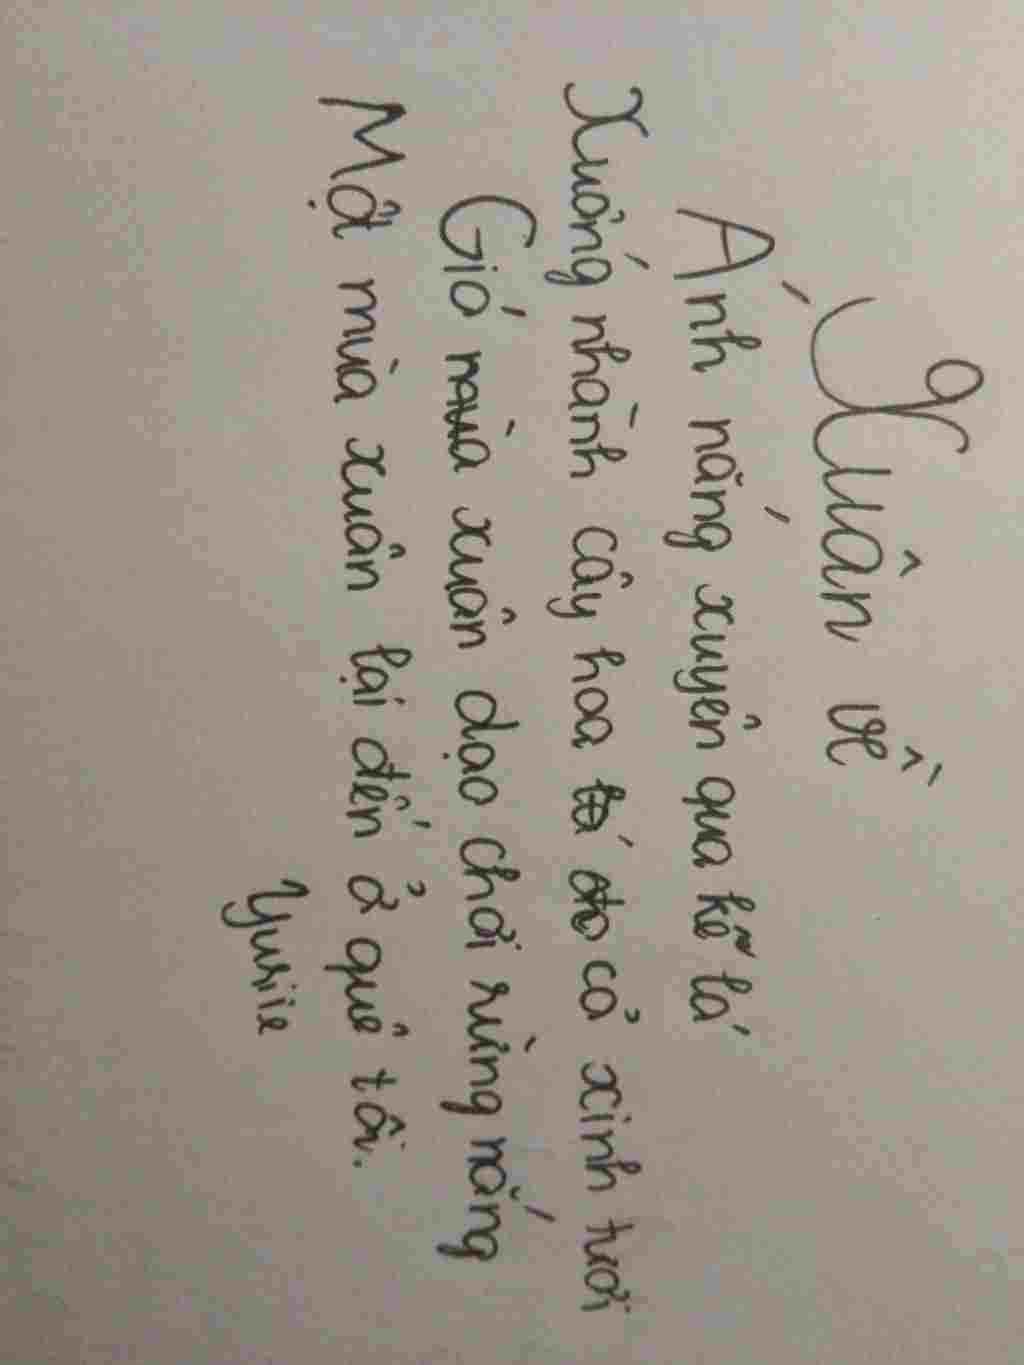 Xuân về
Ánh nắng xuyên qua kẽ lá
Xuống nhành cây hoa cỏ xinh tươi
Gió mùa xuân dạo chơi rừng nắng
Một mùa xuân lại đến ở quê tôi.
Yuriie